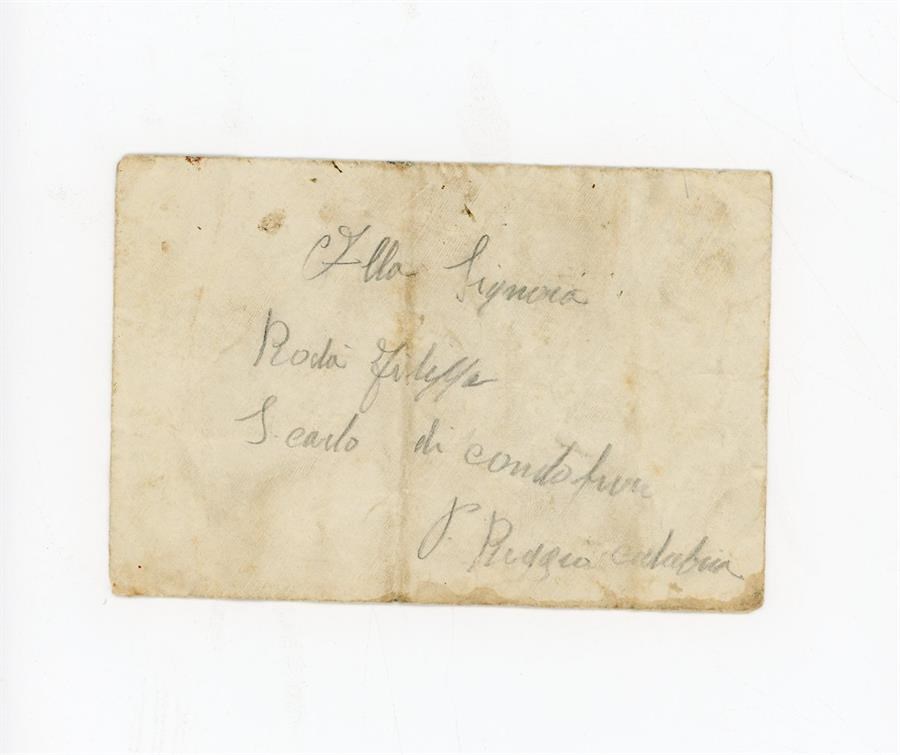 Alla Signora
Rodà Filippa
S. carlo di condofuri
P. Reggio calabria